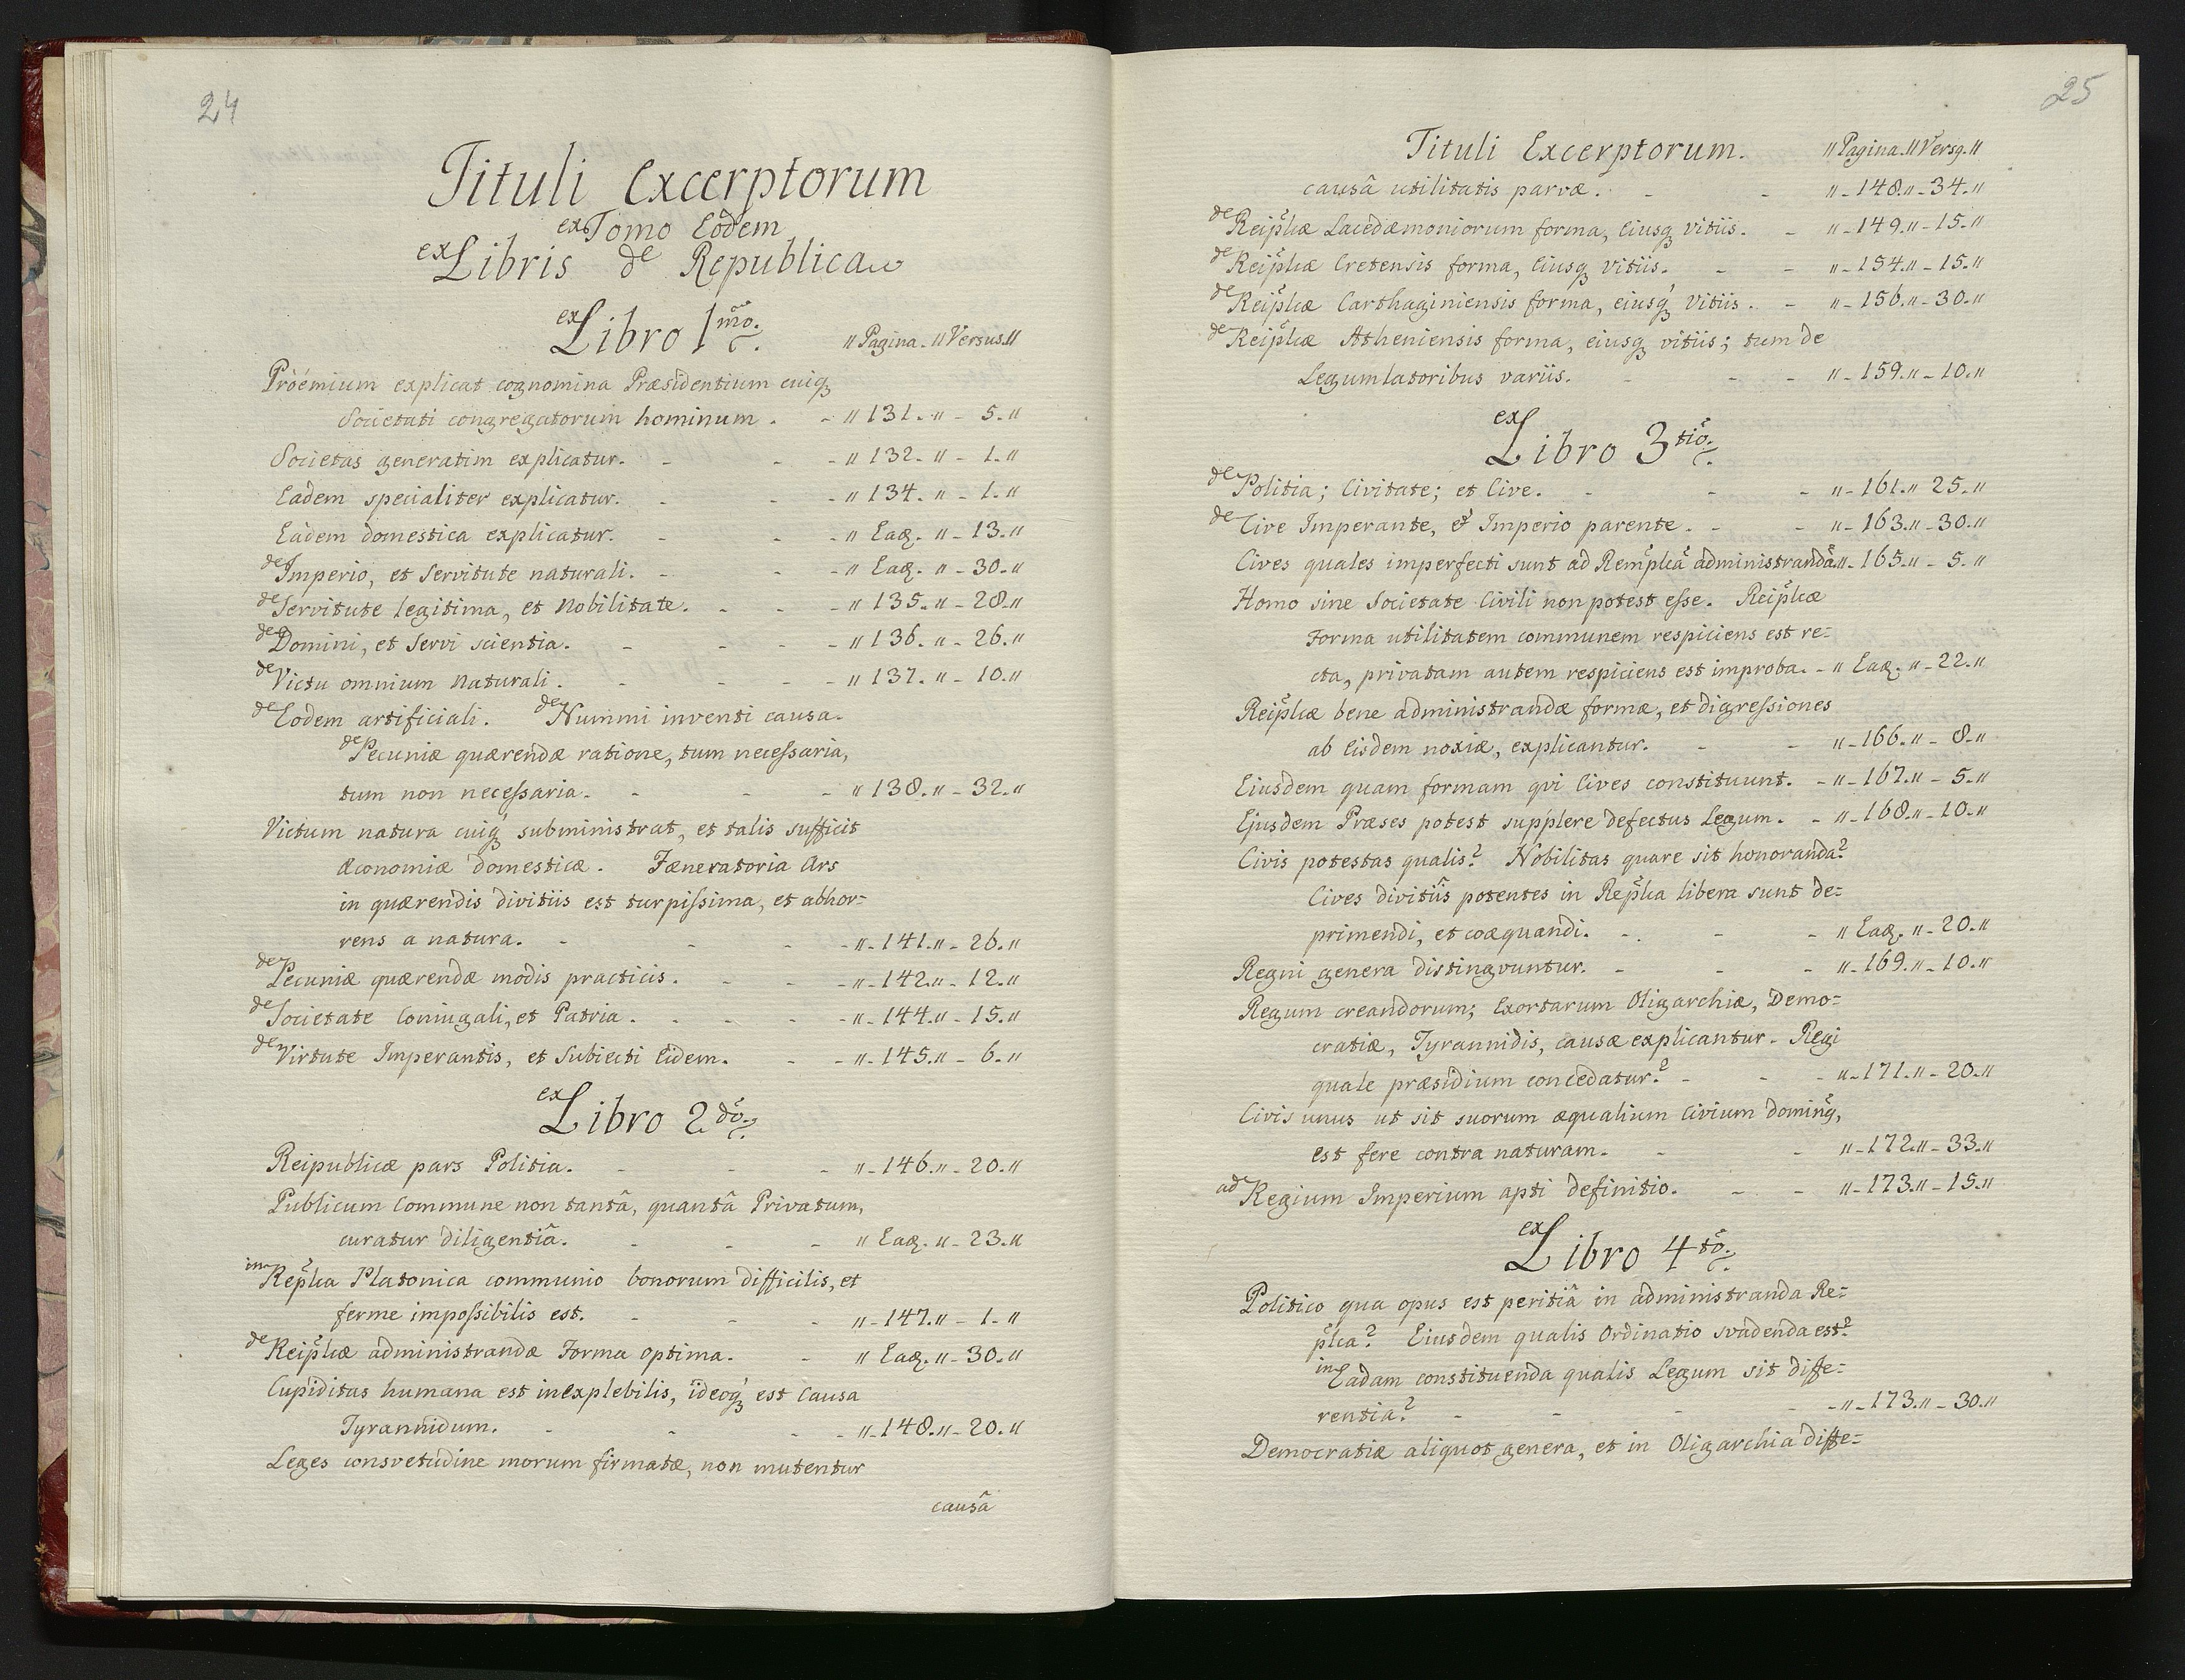 24
Tituli Excerptorum
ex Tomo Eodem
ex Libris de Republica
ex Libro 1mo.
" Pagina. " Versus. "
Pröemium explicat cognomina Præsidentium cuiqꝫ
Societati congregatorum hominum. - " 131. " - 5. "
Societas generatim explicatur. - - - " 132. " - 1. "
Eadem specialiter explicatur. - - - " 134. " - 1. "
Eadem domestica explicatur. - - - " Eaꝫ. " - 13. "
de Imperio, et Servitute naturali. - - - " Eaꝫ. " - 30. "
de Servitute legitima, et Nobilitate. - - - " 135. " - 28. "
de Domini, et Servi scientia. - - - - " 136. " - 26. "
de Victu omnium Naturali. - - - - " 137. " - 10. "
de Eodem artificiali. de Nummi inventi causa.
de Pecuniæ quærendæ ratione, tum necessaria,
tum non necessaria. - - - " 138. " - 32. "
Victum natura cuiqꝫ subministrat, et talis sufficit
Æconomiæ domesticæ. Fæneratoria Ars
in quærendis divitiis est turpissima, et abhor=
rens a natura. - - - - " - 141. " - 26. "
de Pecuniæ quærendæ modis practicis. - - - " - 142. " - 12. "
de Societate Coniugali, et Patria. - - - - " - 144. " - 15. "
de Virtute Imperantis, et Subiecti Eidem. - - " - 145. " - 6. "
ex Libro 2do.
Reipublicæ pars Politia. - - - " - 146. " - 20. "
Publicum Commune non tantâ, quantâ Privatum,
curatur diligentiâ. - - - " Eaꝫ. " - 23. "
in Rep̃lca Platonica communio bonorum difficilis, et
ferme impossibilis est. - - - " - 147. " - 1. "
de Reip̃lcæ administrandæ Forma optima. - " Eaꝫ. " - 30. "
Cupiditas humana est inexplebilis, ideoqꝫ est Causa
Tyrannidum. - - - - " - 148. " - 20. "
Leges consvetudine morum firmatæ, non mutentur
causâ
25
Tituli Excerptorum. " Pagina. " Versꝯ. "
causâ utilitatis parvæ. - - " - 148. " - 34. "
de Reip̃lcæ Lacedæmoniorum forma, Eiusqꝫ vitiis. - " - 149. " - 15. "
de Reip̃lcæ Cretensis forma, Eiusqꝫ vitiis. - - " - 154. " - 15. "
de Reip̃lcæ Carthaginiensis forma, eiusqꝫ vitiis. - " - 156. " - 30. "
de Reip̃lcæ Atheniensis forma, eiusqꝫ vitiis; tum de
Legumlatoribus variis. - - - " - 159. " - 10. "
ex Libro 3tio.
de Politia; Civitate; et Cive. - - - " - 161. " 25. "
de Cive Imperante, & Imperio parente. - - " - 163. " - 30. "
Cives quales imperfecti sunt ad Remp̃lcã administrandã. " - 165. " - 5. "
Homo sine Societate Civili non potest esse. Reip̃lcæ
Forma utilitatem communem respiciens est re=
cta, privatam autem respiciens est improba. - " Eaꝫ. " - 22. "
Reip̃lcæ bene administrandæ formæ, et digressiones
ab Eisdem noxiæ, explicantur. - - " - 166. " - 8. "
Eiusdem quam formam qvi Cives constituunt. - " - 167. " - 5. "
Ejusdem Præses potest supplere defectus Legum. - " - 168. " - 10. "
Civis potestas qualis? Nobilitas quare sit honoranda?
Cives divitiis potentes in Rep̃lca libera sunt de=
primendi, et coæquandi. - - - " Eaꝫ. " - 20. "
Regni genera distingvuntur. - - - " - 169. " - 10. "
Regum creandorum; Exortarum Oligarchiæ, Demo=
cratiæ, Tyrannidis, causæ explicantur. Regi
quale præsidium concedatur? - - - " - 171. " - 20. "
Civis unus ut sit suorum æqualium Civium Dominꝯ,
est fere contra naturam. - - " - 172. " - 33. "
ad Regium Imperium apti definitio. - - " - 173. " - 15. "
ex Libro 4to.
Politico qua opus est peritiâ in administranda Re=
p̃lca? Eiusdem qualis Ordinatio svadenda est?
in Eadam constituenda qualis Legum sit diffe=
rentia? - - - - " - 173. " - 30. "
Democratiæ aliquot genera, et in Oligarchia diffe=